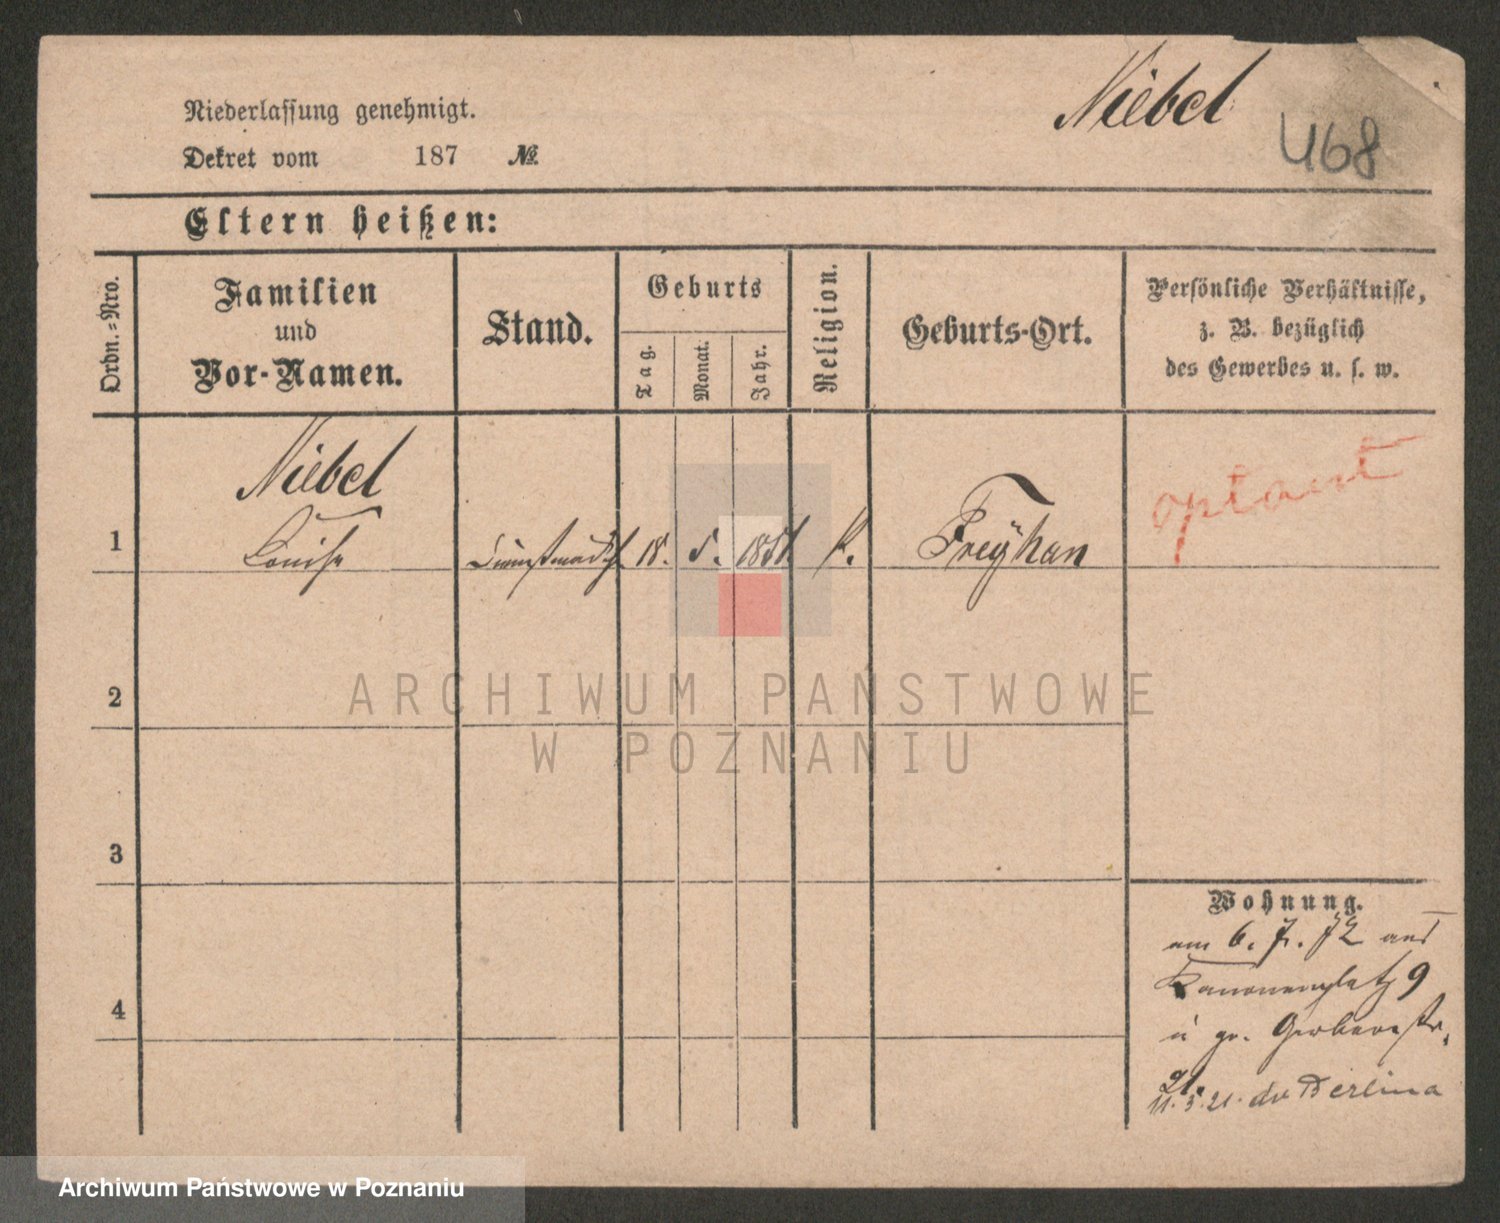 Niebel
468
Niederlassung genehmigt.
Dekret vom 187 №
Eltern heißen:
Ordn.-Nro.
Familien
und
Vor-Namen.
Stand.
Geburts
Tag.
Monat.
Jahr.
Religion.
Geburts-Ort.
Persönliche Verhältnisse,
z. B. bezüglich
des Gewerbes u. s. w.
Niebel
optant
1 Louise Dienstmädch 18. 5. 1851 k. Freyhan
2
3
4
Wohnung.
am 6. 7. 72 aus
Kanonenplatz 9
u gr. Gerberstr.
21.
11.3.21. do Berlina
ARCHIWUM PAŃSTWOWE
W POZNANIU
Archiwum Państwowe w Poznaniu